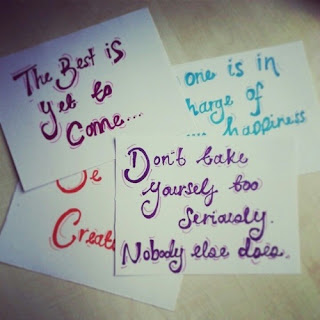 The Best is
yet to
Come....
one is in
harge of
.... happiness
Be
Creat
Don't take
yourself too
Seriously.
Nobody else does.